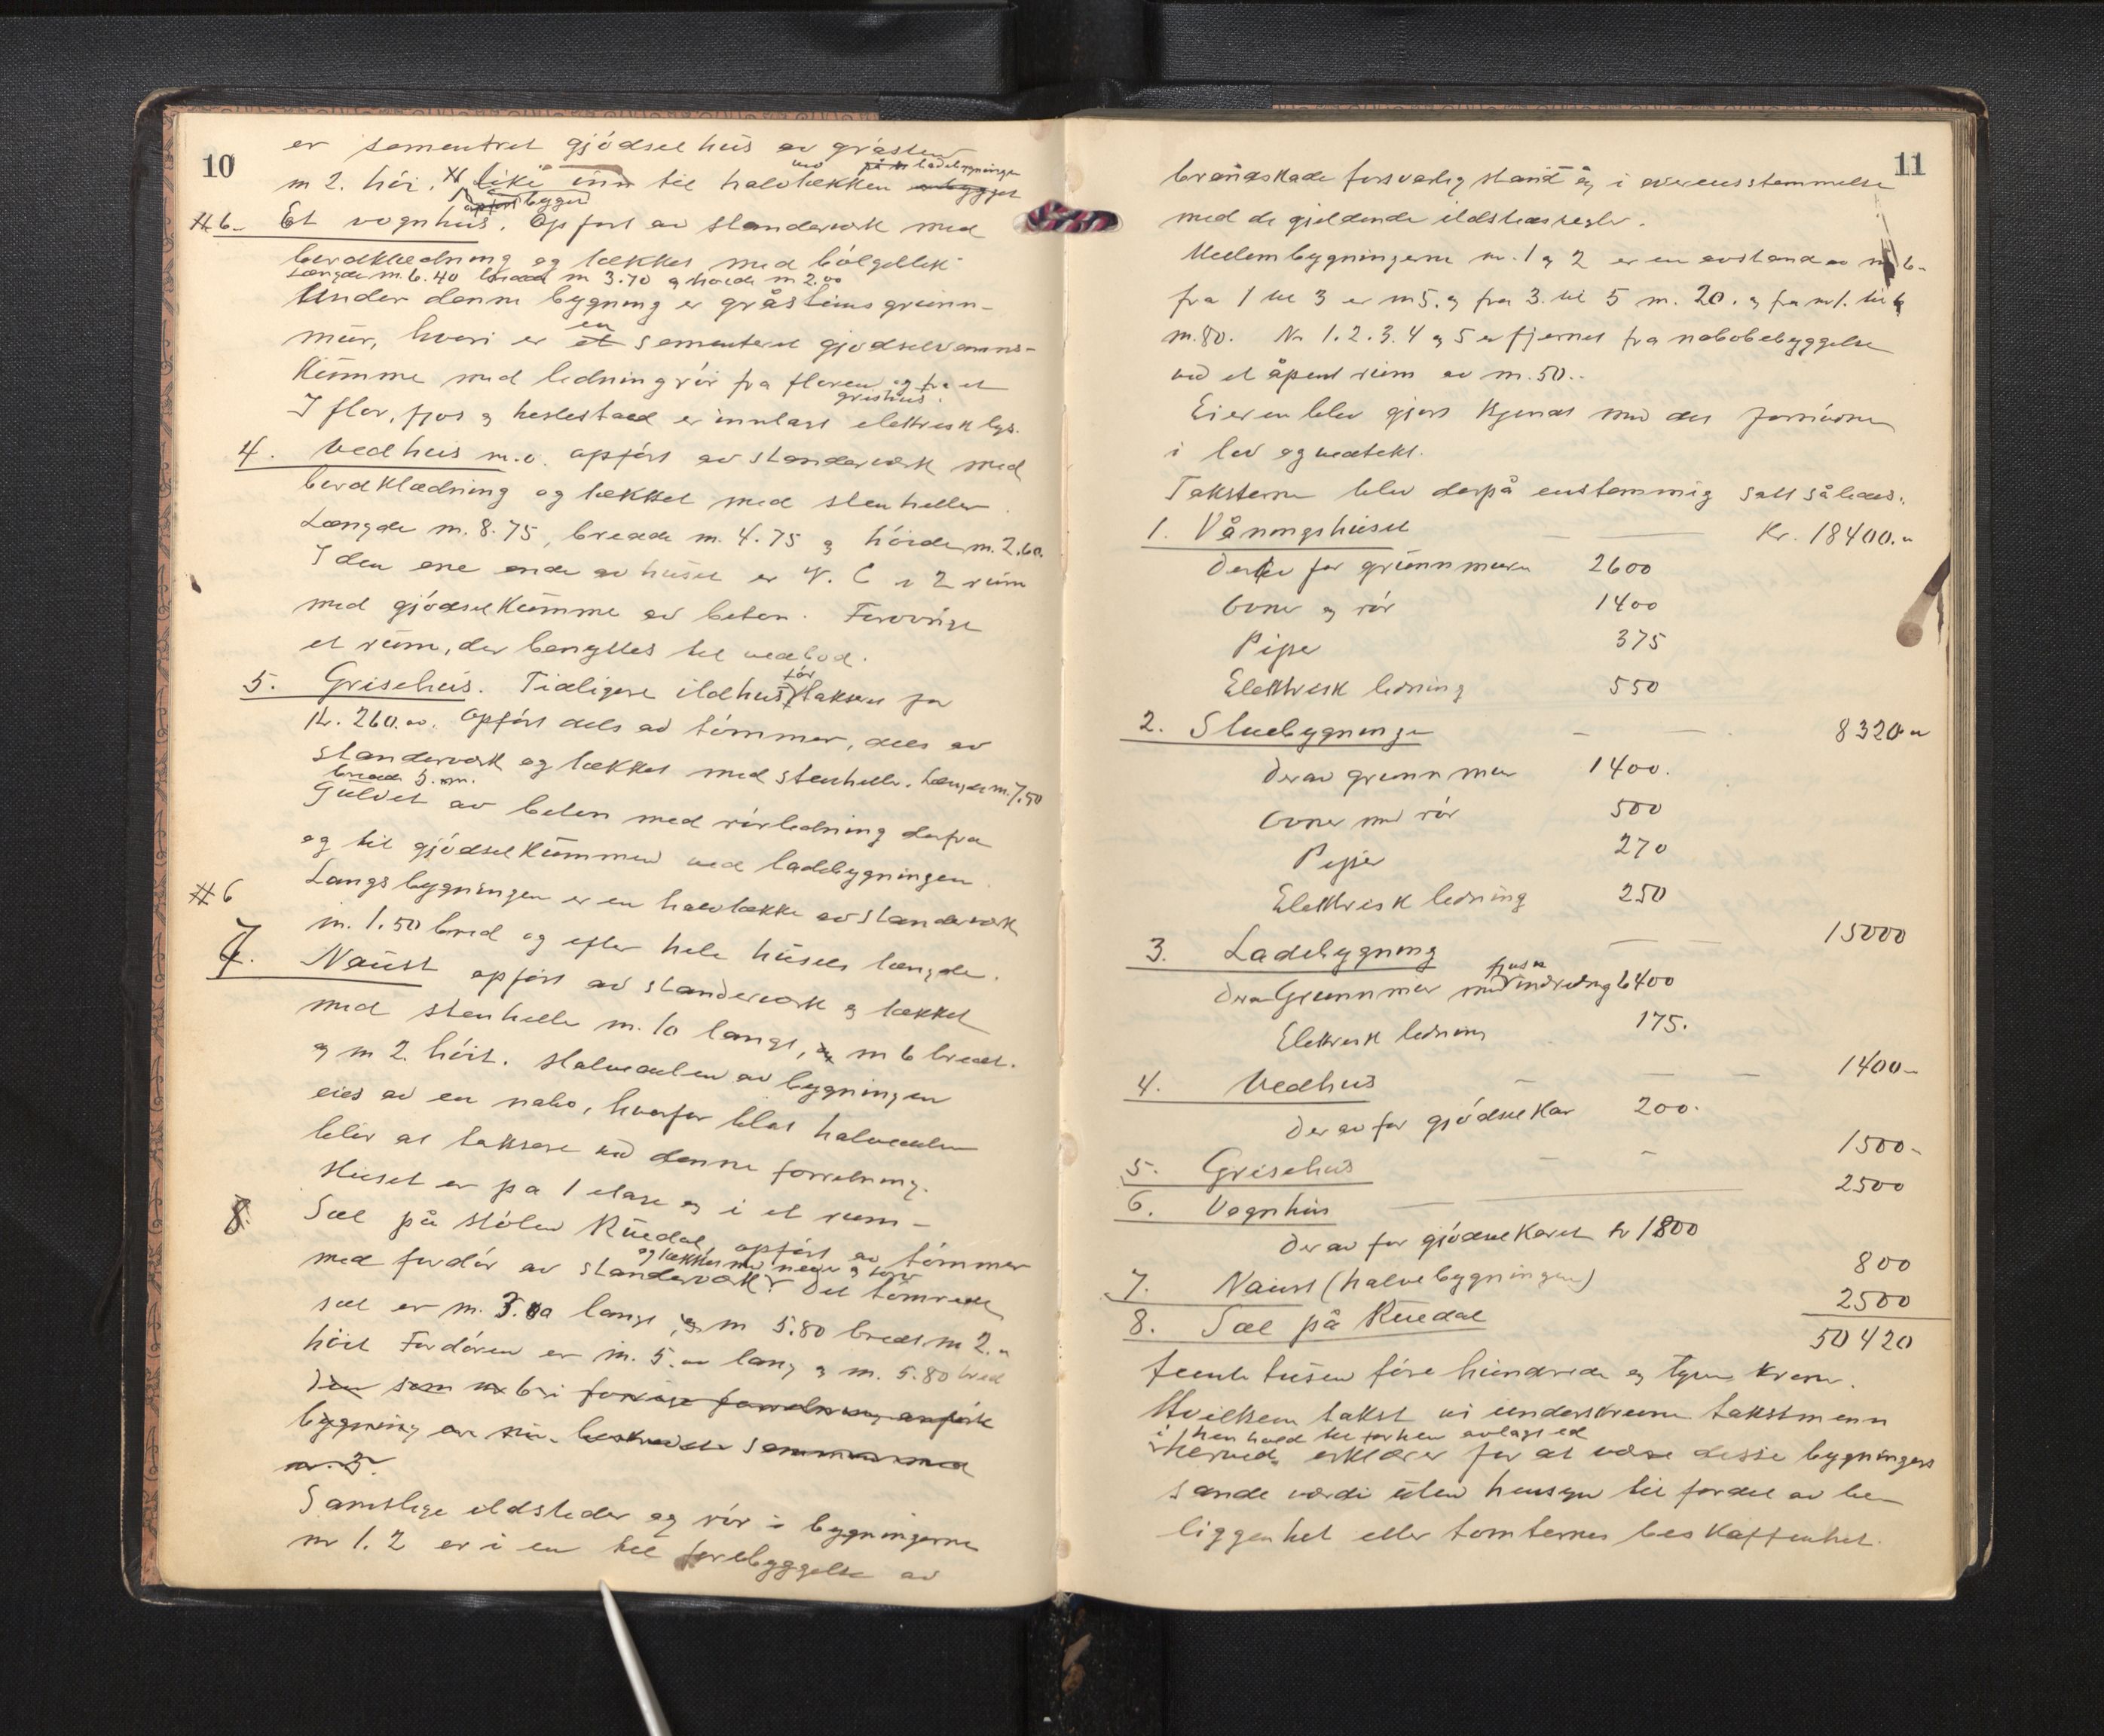 10
er sementret gjödsel hus av gråsten
m 2. höi. # like inn til halvtækken ved ladebygningen
bygget
# 6- Et vognhus. Opfört av standerverk med
bordklædning og tækket med bölgeblik
Længde m. 6.40 bredde m 3.70 og höide m 2.00
Under denne bygning er gråstens grunn-
mur, hvori er en sementeret gjödselvanns-
kumme med ledningrör fra floren og fra et
grishus.
I flor, fjos og hestestald er innlagt elektrisk lys.
4. Vedhus m.v. opfört av standerverk med
bordklædning og tækket med stenheller.
Længde m. 8.75, bredde m. 4.75 og höide m. 2.60.
I den ene ende av huset er V. C i 2 rum
med gjödselkumme av beton. Forövrigt
et rum, der benyttes til vedbod.
5. Grisehus. Tidligere ildhus för takseret for
kr. 260.00. Opfört dels av tömmer, dels av
standerverk og tækket med stenheller. Længde m. 7.50
bredde 5. m.
Gulvet av beton med rörledning derfra
og til gjödselkummen ved ladebygningen.
# 6 Langs bygningen er en halvtække av standerverk
m. 1.50 bred og efter hele husets længde.
7. Naust opfört av standerverk og tækket
med stenheller m. 10 langt, m 6 bredt.
og m 2 höit. Halvedelen av bygningen
eies av en nabo, hvorfor blot halvedelen
blir at taksere ved denne forretning.
Huset er på 1 etage og i et rum -
8. Sæl på stölen Ruedal, opfört av tömmer
med fordör av standerverk og tækket med never og torv Det tömrede
sæl er m. 3. langt, m 5.80 bredt m 2.
höit Fordören er m. 5. lang og m. 5.80 bred
Den som nr 6 i forrige forretning anförte
bygning er nu beskrevet sammen med
nr. 3.
Samtlige ildsteder og rör i bygningerne
nr 1. 2 er i en til forebyggelse av
11
brandskade forsvarlig stand og i overensstemmelse
med de gjeldende ildstedsregler.
Mellem bygningerne nr. 1 og 2 er en avstand av m 6-
fra 1 til 3 er m 5. og fra 3. til 5 m. 20. og fra nr 1. til 4
m. 80. Nr 1. 2. 3. 4 og 5 er fjernet fra nabobebyggelse
ved et åpent rum av m. 50..
Eieren blev gjort kjendt med det fornödne
i lov og vedtekt.
Taksterne blev derpå enstemmig satt således:
1. Våningshuset Kr. 18400.
Derav for grunnmuren 2600
Ovner og rör 1400
Piper 375
Elektrisk ledning 550
2. Stuebygningen 8320
Derav grunnmur 1400.
Ovner med rör 500
Piper 270
Elektrisk ledning 250
3. Ladebygning 15000
Derav Grunnmur med fjøs indredning 6400
Elektrisk ledning 175.
4. Vedhus 1400-
Derav for gjödselkar 200.
5. Grisehus 1500-
6. Vognhus 2500
Derav for gjödselkaret kr 1800
7. Naust (halve bygningen) 800
8. Sæl på Ruedal 2500
50420
femti tusen fire hundrede og tyve kroner.
Hvilken takst vi underskrevne takstmenn
i henhold til forhen avlagt ed
herved erklærer for at være disse bygningers
sande værdi uten hensyn til fordel av be-
liggenhet eller tomternes beskaffenhet.